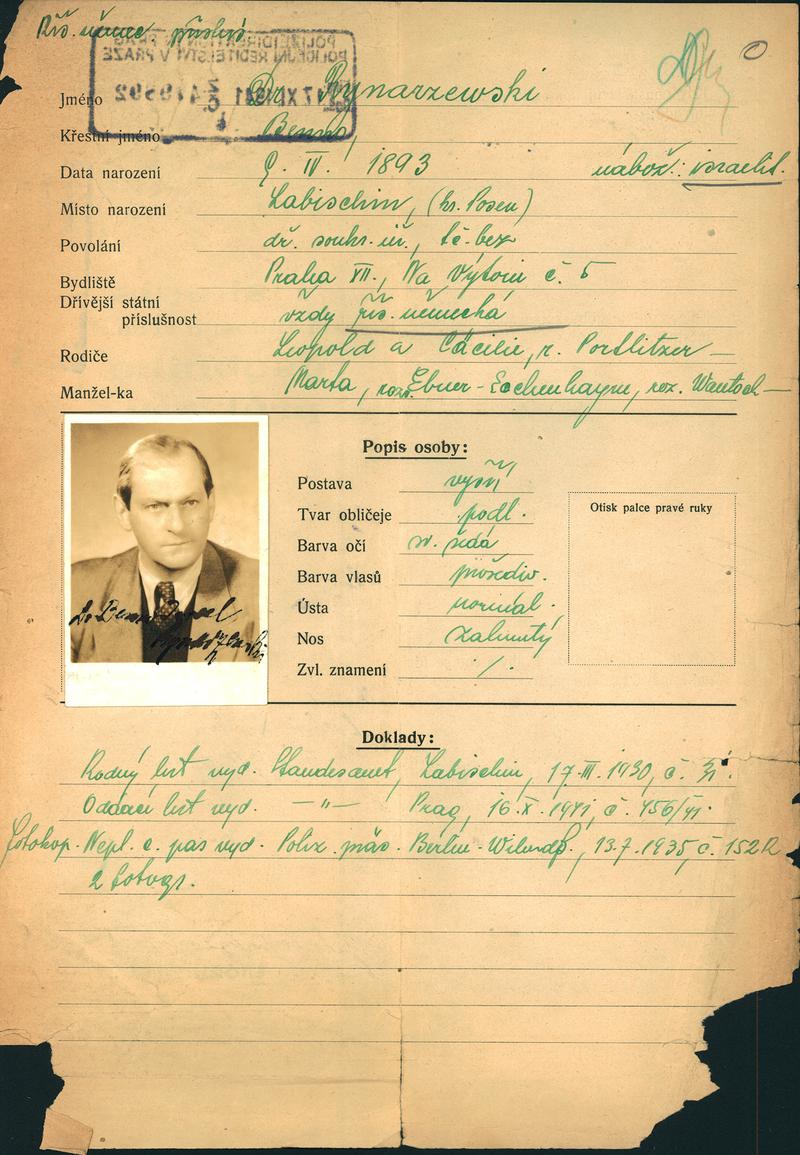 Říš. němec přísluš.
POLIZEIDIREKTION IN PRAG
POLICEJNÍ ŘEDITELSTVÍ V PRAZE
17 XI 1941
Jméno Dr. Rynarzewski
Křestní jméno Benno,
Data narození 9. IV. 1893 nábož.: israelit.
Místo narození Labischin, (kr. Posen)
Povolání dř. soukr. úř., t.č. bez
Bydliště Praha VII., Na Výtoni č. 5
Dřívější státní
příslušnost vždy říš. německá
Rodiče Leopold a Cäcilie, r. Portlitzer —
Manžel-ka Marta, rozv. Ebner-Eschenhayn, roz. Wantoch —
Popis osoby:
Postava vyšší
Tvar obličeje podl.
Barva očí sv. šedá
Barva vlasů prošediv.
Ústa normál.
Nos zahnutý
Zvl. znamení /.
Otisk palce pravé ruky
Dr Benno Israel
Rynarzewski
Doklady:
Rodný list vyd. Standesamt, Labischin, 17. III. 1930, č.
Oddací list vyd. — „ — Prag, 16. X. 1941, č. 456/41.
fotokop. Nepl. c. pas vyd. Poliz. präs. Berlin-Wilmdf., 13.7.1935, č. 152
2 fotogr.